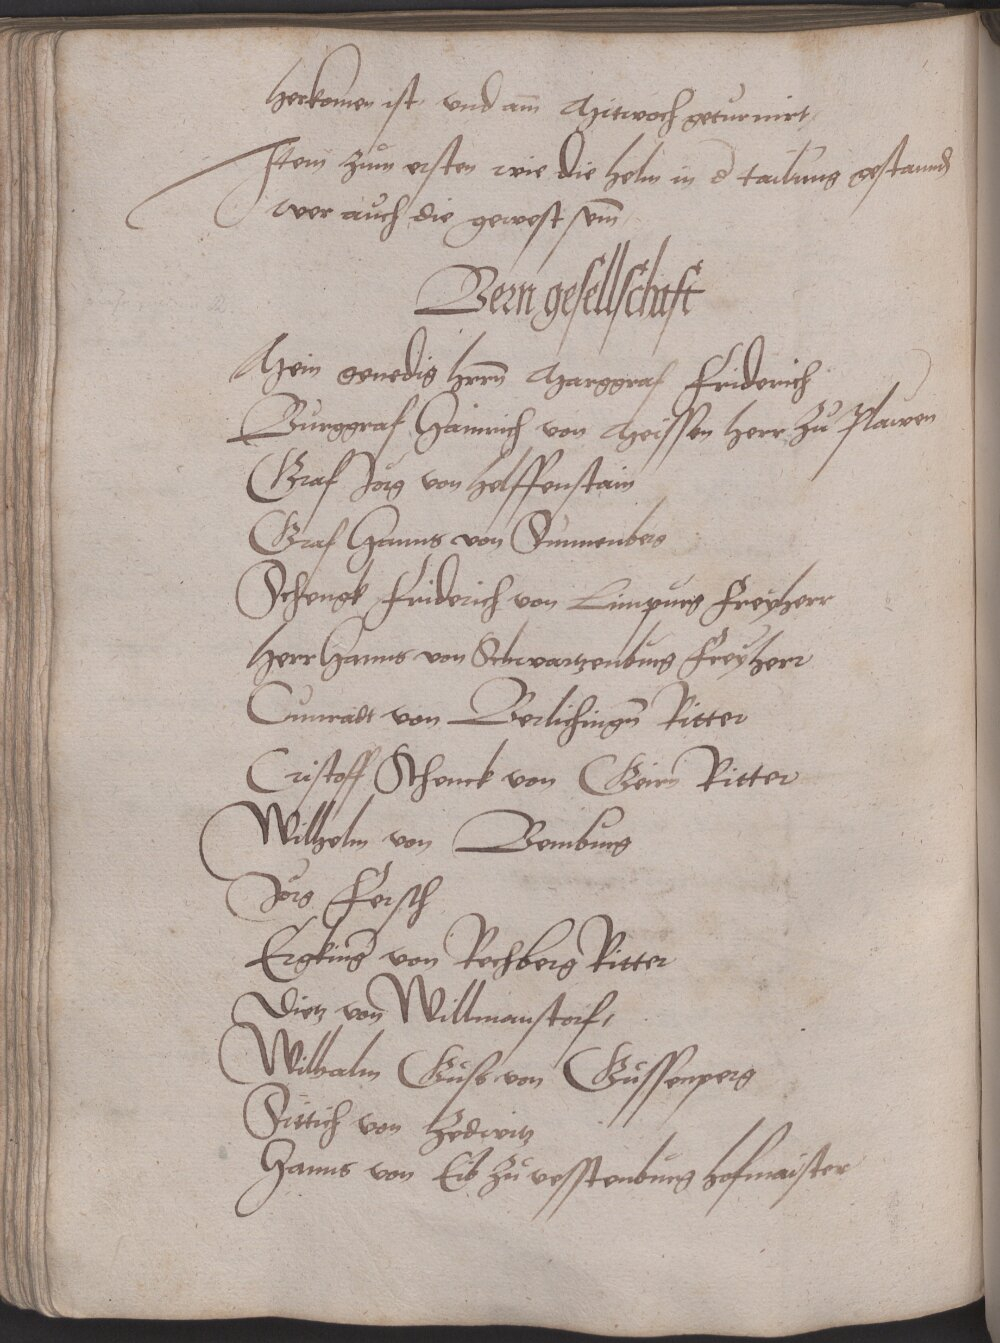 herkomen ist und am Mitwoch geturnirt
Item zum ersten wie die helm in d tailung gestannd
wer auch die gewest sein
Bern gesellschaft
Mein genedig herrn Marggraf Friderich
Burggraf Hainrich von Meissen herr zu Plawen
Graf Jorg von helffenstain
Graf Hanns von Sunnenberg
Schengk Friderich von Limpurg Freyherr
herr Hanns von Schwartzenburg Freyherr
Cunradt von Berlichingn Ritter
Cristoff Schenck von Geirn Ritter
Wilhelm von Bemburg
Jorg Fersch
Ergking von Rechberg Ritter
Dietz von Willmanstorf
Wilhalm Gúss von Gússenperg
Sittich von Zedwitz
Hanns von Eib zu vesstenburg hofmaister